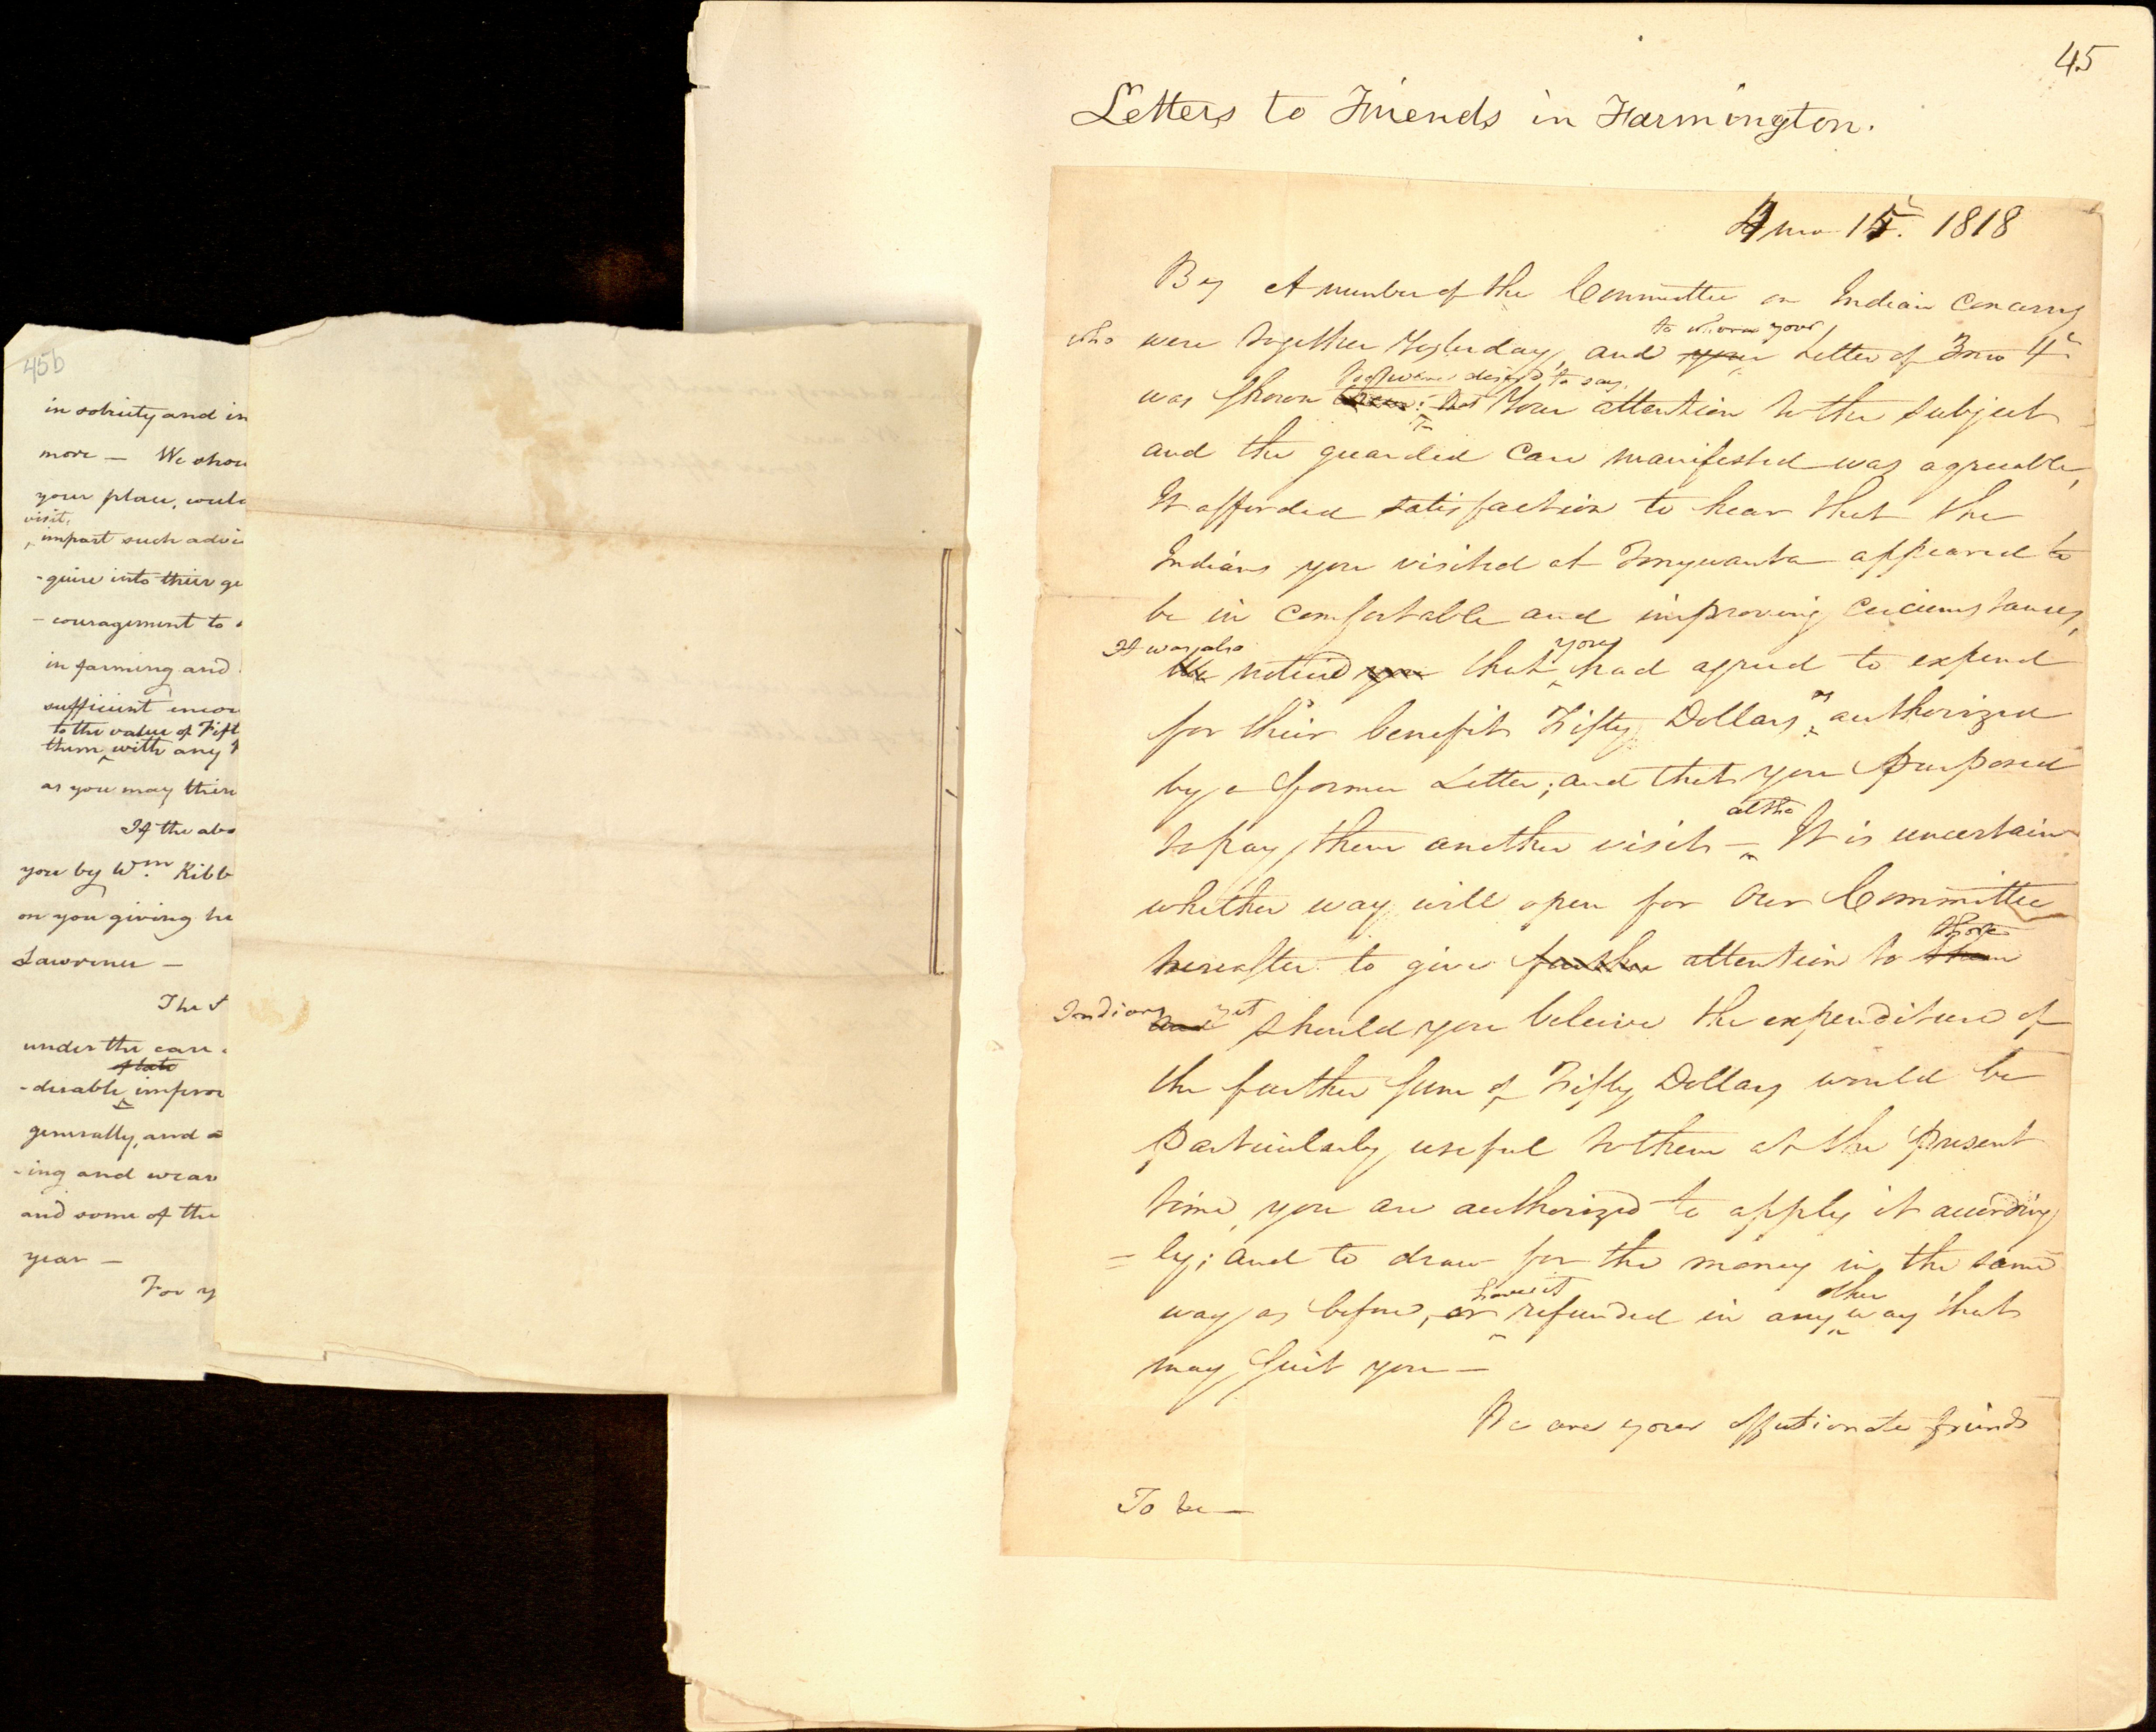 45
Letters to Friends in Farmington.
4 mo 15. 1818
By A number of the Committee on Indian Concerns
to whom your
who were together Yesterday, and your Letter of 3mo 4th
desired to say
was shown that Your attention to the subject
and the guarded Care manifested was agreeable,
It afforded satisfaction to hear that the
Indians you visited at Tonywanta appeared to
be in Comfortable and improving Circumstances,
It was also you
We noticed you that had agreed to expend
as
for their benefit Fifty Dollars authorized
by a former Letter; and that you Purposed
altho
to pay them another visit — It is uncertain
whether way will open for Our Committee
those
hereafter to give further attention to them
Indians yet
and should you beleive the expenditure of
the further Sum of Fifty Dollars would be
Particularly useful to them at the Present
time, you are authorized to apply it according
= ly; and to draw for the money in the same
have it other
way as before, or refunded in any way that
may Suit you —
We are your affectionate friends
To
45b
in sobriety and in
more — We shou
your place, would
visit,
impart such advi
-quire into their ge
-couragement to
in farming and
sufficient encou
to the value of Fift
them with any
as you may thin
If the abo
you by Wm. Kibb
on you giving he
Lawrence —
The
under the care
of late
-derable improv
generally, and
-ing and weav
and some of the
year —
For y